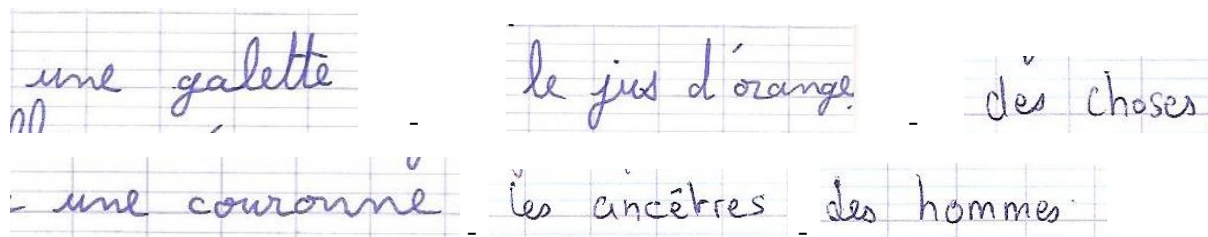 une galette - le jus d'orange - des choses
- une couronne - les ancêtres - des hommes